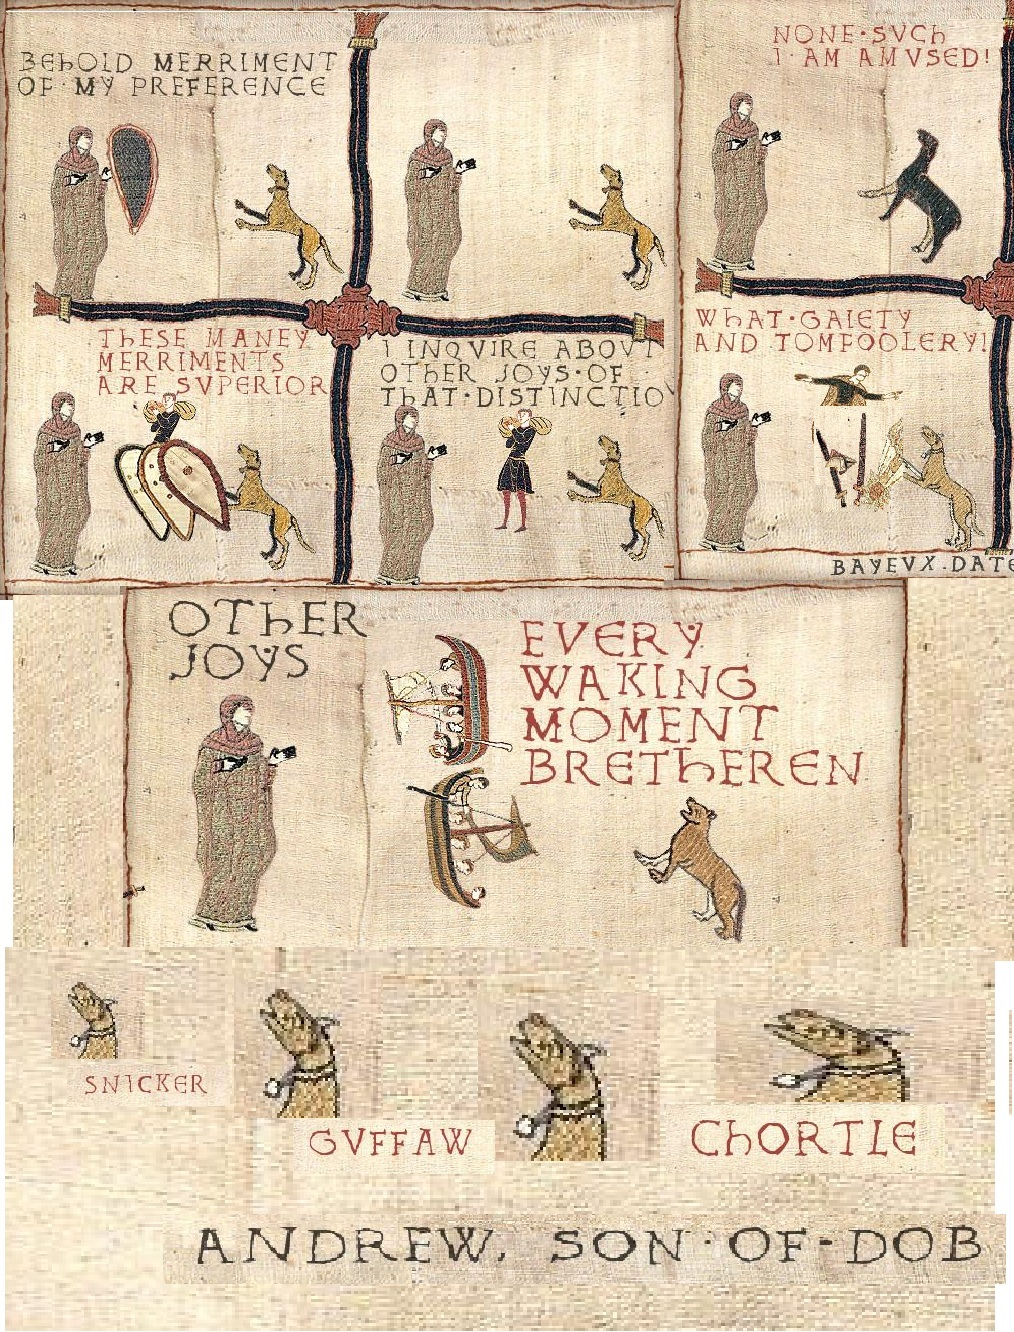 BEhOLD MERRIMENT
OF·MY PREFERENCE
NONE·SVCh
I·AM AMVSED!
ThESE MANEY
MERRIMENTS
ARE SVPERIOR
I INQVIRE ABOVT
OThER JOYS·OF
ThAT·DISTINCTIO
WhAT·GAIETY
AND TOMFOOLERY!
BAYEVX.DATE
OThER
JOYS
EVERY
WAKING
MOMENT
BREThEREN
SNICKER
GVFFAW
ChORTLE
ANDREW, SON·OF-DOB